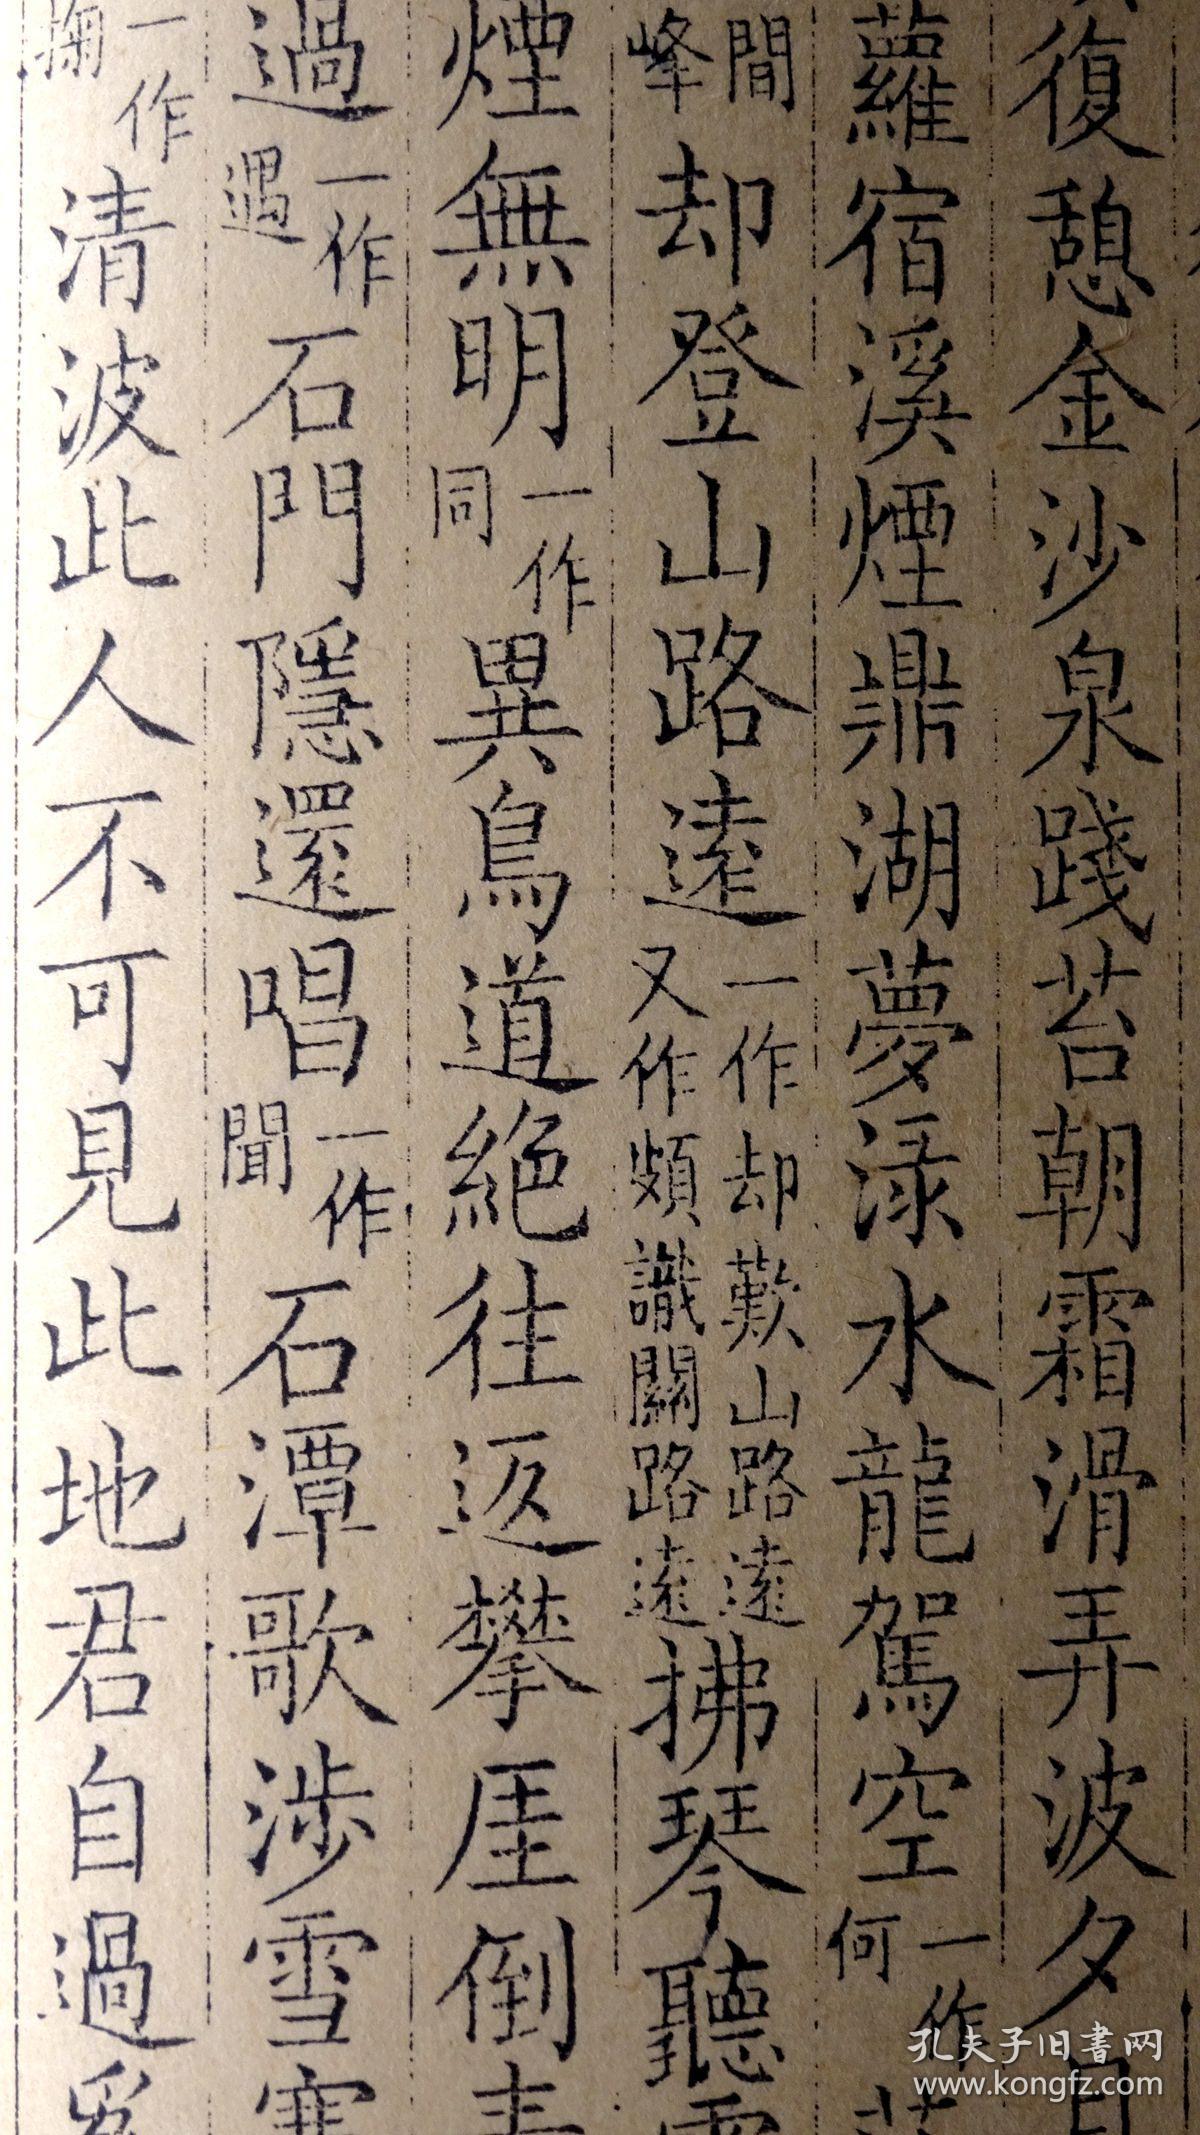 復憩金沙泉踐苔朝霜滑弄波夕
蘿宿溪煙鼎湖夢淥水龍駕空一作何
間峰却登山路遠一作却歎山路遠又作頗識關路遠拂琴聽
煙無明一作同異鳥道絕往返攀厓倒
過一作遇石門隱還唱一作聞石潭歌涉雪
一作掬清波此人不可見此地君自過
孔夫子旧書网
www.kongfz.com